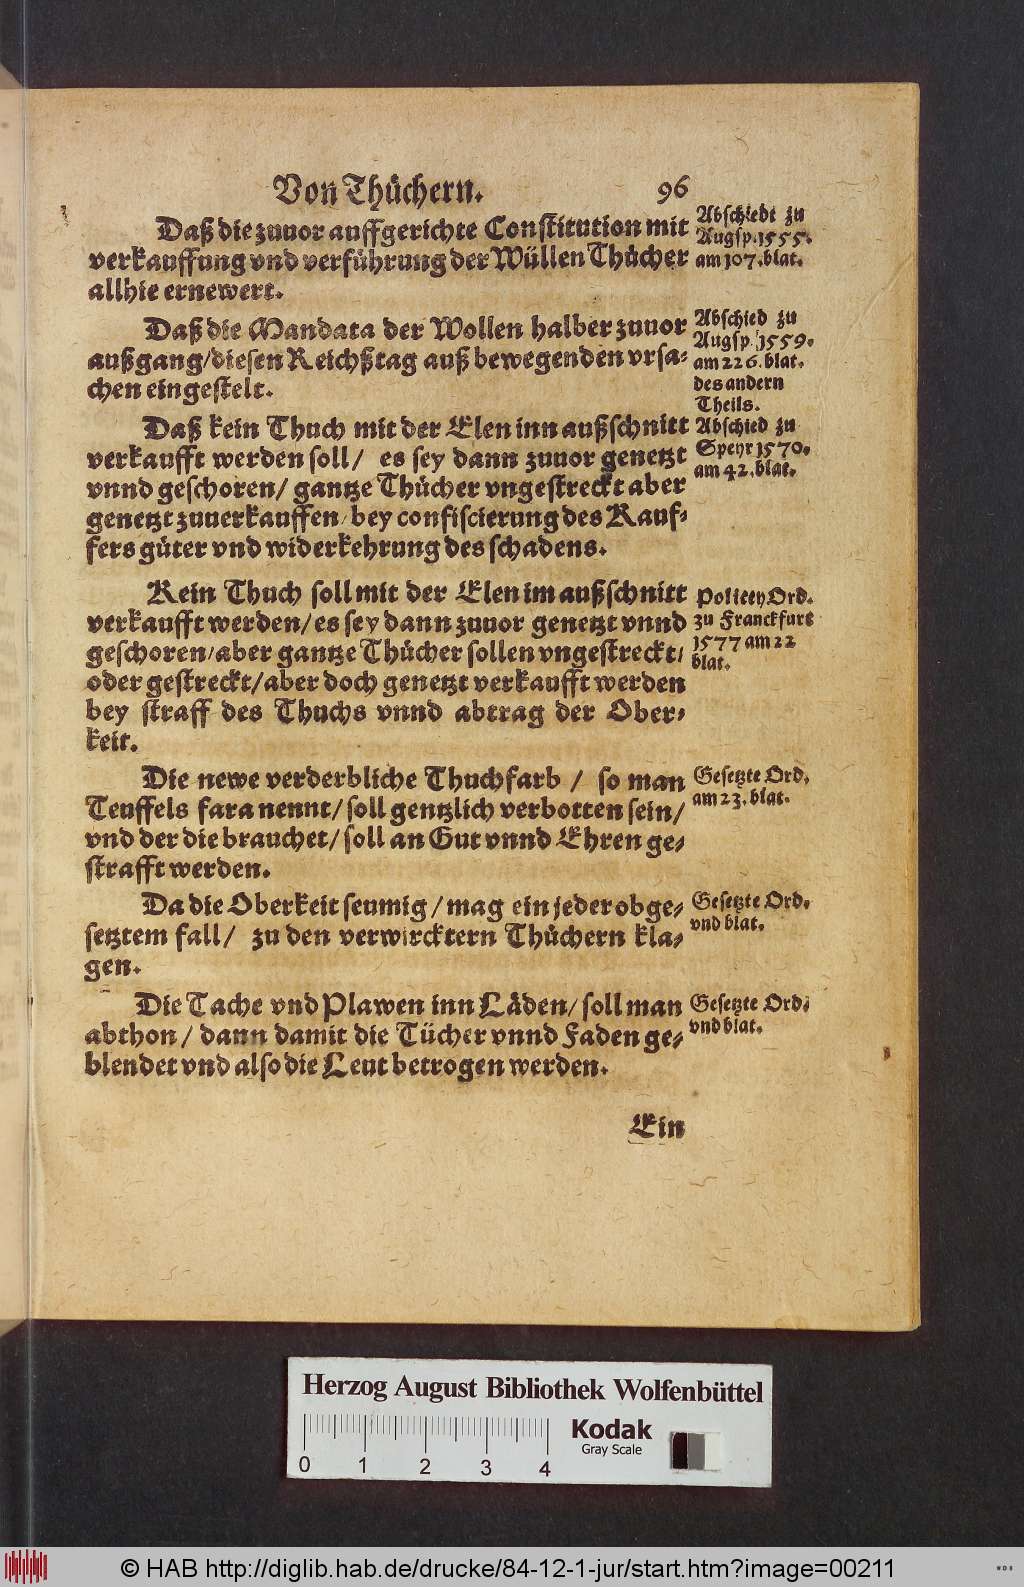 Von Thüchern. 96
Daß die zuuor auffgerichte Constitution mit
verkauffung vnd verführung der Wüllen Thücher
allhie ernewert.
Abschiedt zu
Augsp. 1555.
am 107. blat.
Daß die Mandata der Wollen halber zuuor
außgang/diesen Reichßtag auß bewegenden vrsa-
chen eingestelt.
Abschied zu
Augsp. 1559.
am 226. blat.
des andern
Theils.
Daß kein Thuch mit der Elen inn außschnitt
verkaufft werden soll/ es sey dann zuuor genetzt
vnnd geschoren/ gantze Thücher vngestreckt aber
genetzt zuuerkauffen/bey confiscierung des Kauf-
fers güter vnd widerkehrung des schadens.
Abschied zu
Speyr 1570.
am 42. blat.
Kein Thuch soll mit der Elen im außschnitt
verkaufft werden/ es sey dann zuuor genetzt vnnd
geschoren/aber gantze Thücher sollen vngestreckt/
oder gestreckt/aber doch genetzt verkaufft werden
bey straff des Thuchs vnnd abtrag der Ober-
keit.
Policey Ord.
zu Franckfurt
1577 am 22
blat.
Die newe verderbliche Thuchfarb / so man
Teuffels fara nennt/ soll gentzlich verbotten sein/
vnd der die brauchet/ soll an Gut vnnd Ehren ge-
strafft werden.
Gesetzte Ord.
am 23. blat.
Da die Oberkeit seumig / mag ein jeder obge-
setztem fall/ zu den verwircktern Thüchern kla-
gen.
Gesetzte Ord.
vnd blat.
Die Tache vnd Plawen inn Läden/ soll man
abthon / dann damit die Tücher vnnd Faden ge-
blendet vnd also die Leut betrogen werden.
Gesetzte Ord.
vnd blat.
Ein
Herzog August Bibliothek Wolfenbüttel
Kodak
Gray Scale
0 1 2 3 4
© HAB http://diglib.hab.de/drucke/84-12-1-jur/start.htm?image=00211